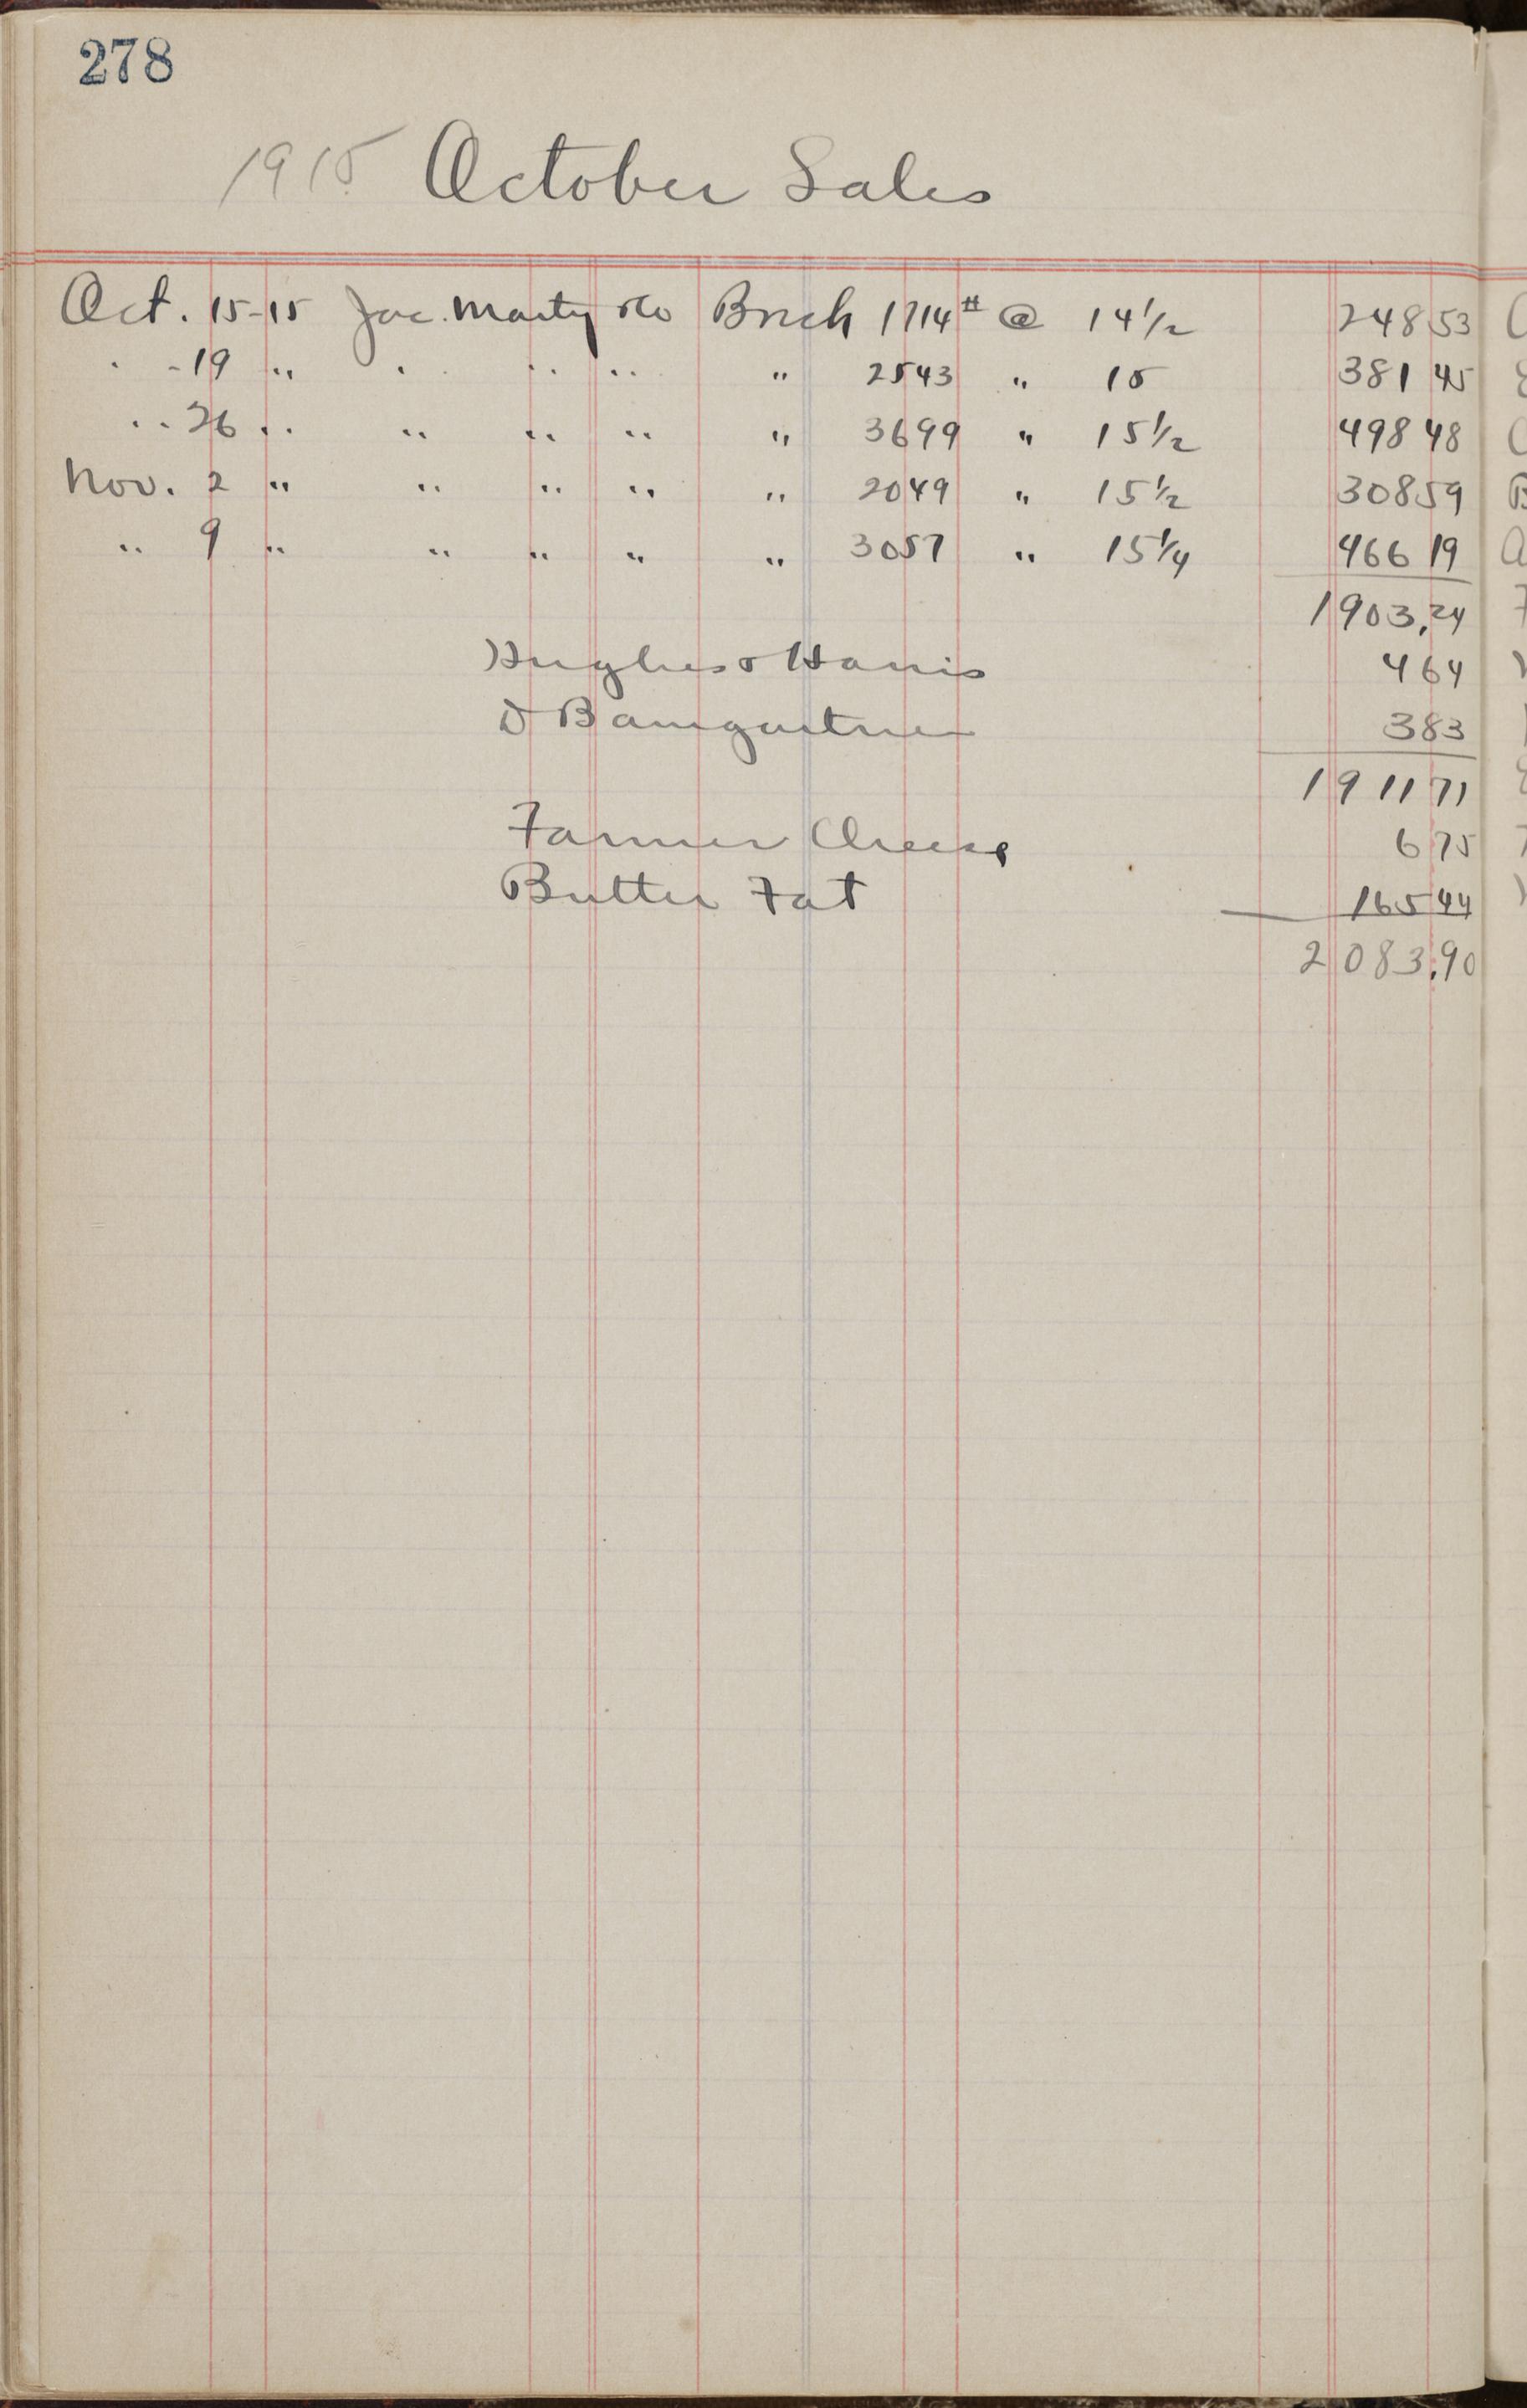 278
1915 October Sales
Oct. 15-15 Jac. Marty & Co Brick 1714# @ 14 1/2 248 53
" -19 " " " " " 2543 " 15 381 45
" 26 " " " " " 3699 " 15 1/2 498 48
Nov. 2 " " " " " 2049 " 15 1/2 308 59
" 9 " " " " " 3057 " 15 1/4 466 19
1903.24
Hughes & Harris 4 64
D Baumgartner 3 83
1911 71
Farmer Cheese 6 75
Butter Fat 165 44
2083.90